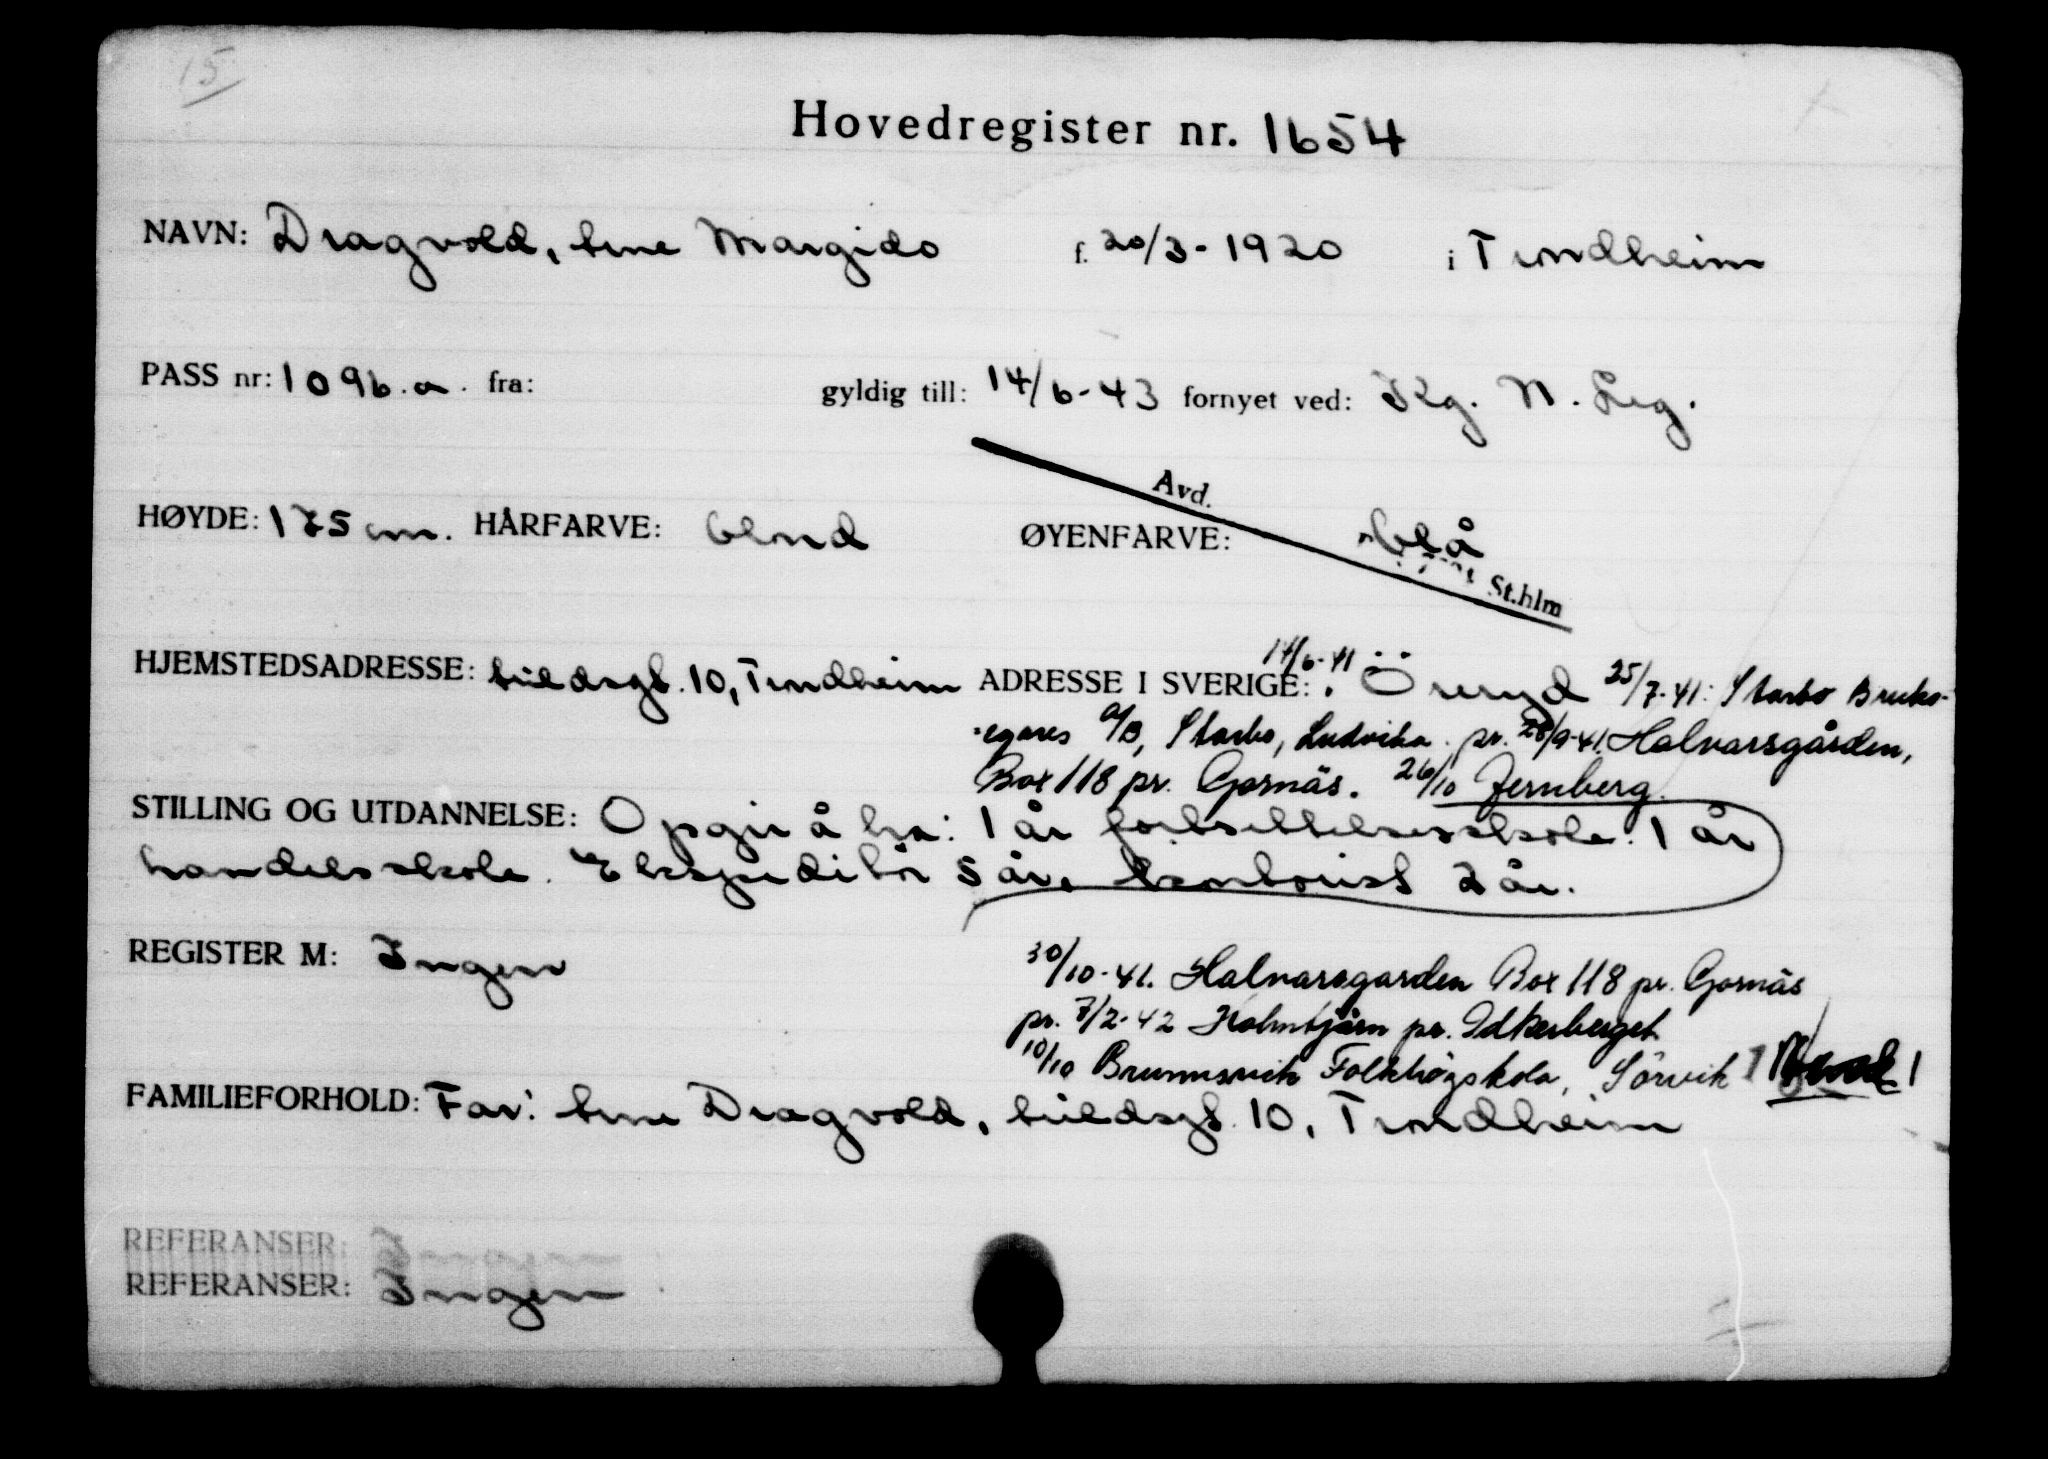 15
Hovedregister nr. 1654
NAVN: Dragvold, Arne Margido f. 20/3-1920 i Trondheim
PASS nr: 1096.a. fra: gyldig till: 14/6-43 fornyet ved: Kg. N. Leg.
Avd. St.hlm
HØYDE: 175 cm. HÅRFARVE: blond ØYENFARVE: blå
HJEMSTEDSADRESSE: 10, Trondheim ADRESSE I SVERIGE: 14/6-41 Öreryd 25/7-41: Starbo Bruks-
egares A/B, Starbo, Ludvika. pr. 28/9-41. Halvarsgården,
Box 118 pr. Gornäs. 26/10 Jernberg.
STILLING OG UTDANNELSE: Opgir å ha: 1 år fortsettelsesskole. 1 år
handelsskole. Ekspeditör 5 år, kontorist 2 år.
REGISTER M: Ingen
30/10-41. Halvarsgarden Box 118 pr. Gornäs
pr. 7/2-42 Holmtjärn pr. Idkerberget
10/10 Brunnsvik Folkhögskola, Sörvik
FAMILIEFORHOLD: Far: Arne Dragvold, 10, Trondheim
REFERANSER: Ingen
REFERANSER: Ingen